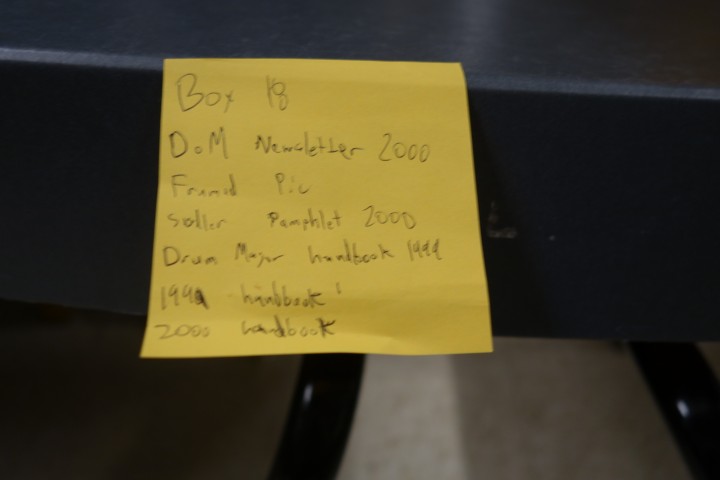 Box 18
DoM Newsletter 2000
Framd Pic
Pamphlet 2000
Drum Major handbook 1999
1999 handbook
2000 handbook